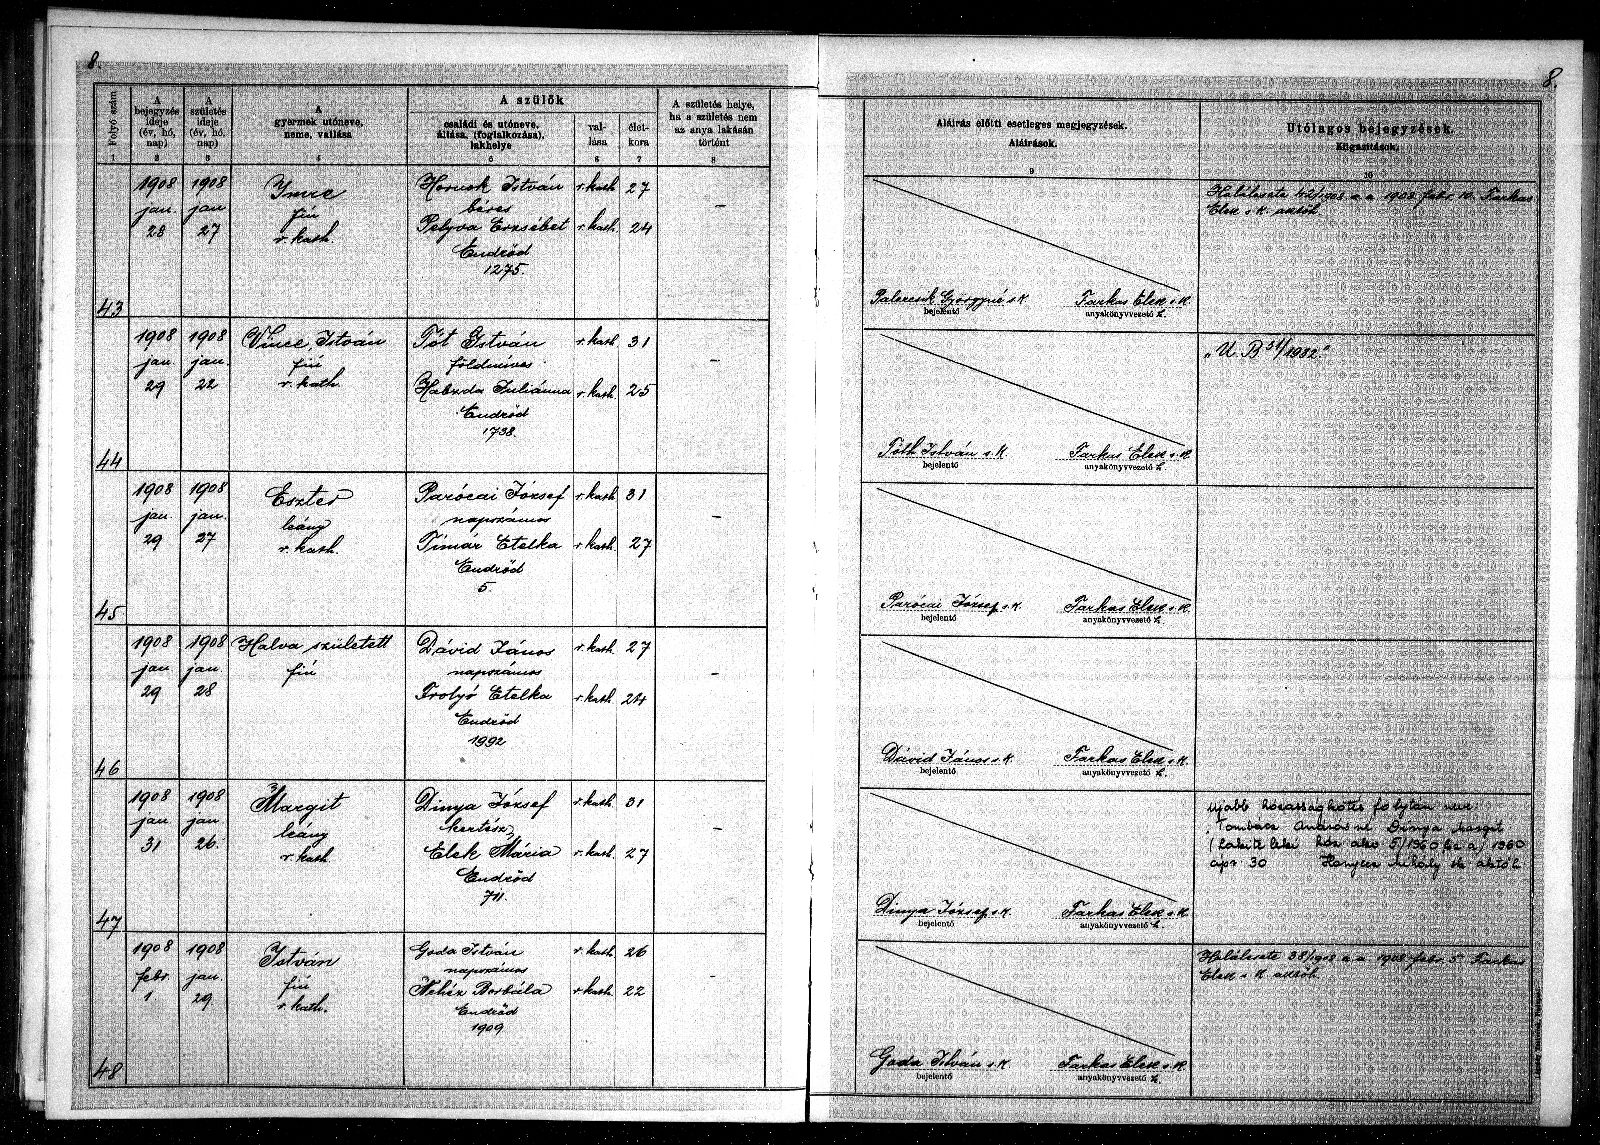 8.
8.
Folyó szám
A bejegyzés ideje (év, hó, nap)
A születés ideje (év, hó, nap)
A gyermek utóneve, neme, vallása
A szülők
családi és utóneve, állása, (foglalkozása), lakhelye
vallása
életkora
A születés helye, ha a születés nem az anya lakásán történt
Aláirás előtti esetleges megjegyzések.
Aláirások.
Utólagos bejegyzések.
Kiigazitások.
1 2 3 4 5 6 7 8 9 10
43
1908 jan. 28
1908 jan 27
Imre
fiú
r. kath.
Hornok István r. kath. 27
béres
Pelyva Erzsébet r. kath. 24
Endrőd
1275.
–
Farkas Elek s. k.
bejelentő
anyakönyvvezető h.
Halálesete 1908 febr. 10. Farkas
Elek s. k. aktól.
44
1908 jan 29
1908 jan. 22
Vince István
fiú
r. kath.
Tót István r. kath. 31
földmives
Habzda Juliánna r. kath. 25
Endrőd
1738.
–
Tóth István s. k.
bejelentő
Farkas Elek s. k.
anyakönyvvezető h.
„U. B 51/1982."
45
1908 jan. 29
1908 jan. 27
Eszter
leány
r. kath.
Parócai József r. kath. 31
napszámos
Tímár Etelka r. kath. 27
Endrőd
5.
–
Parócai József s. k.
bejelentő
Farkas Elek s. k.
anyakönyvvezető h.
46
1908 jan. 29
1908 jan. 28
Halva született
fiú
Dávid János r. kath. 27
napszámos
Frolyó Etelka r. kath. 24
Endrőd
1992
–
Dávid János s. k.
bejelentő
Farkas Elek s. k.
anyakönyvvezető h.
47
1908 jan. 31
1908 jan 26.
Margit
leány
r. kath.
Dinya József r. kath. 31
kertész
Elek Mária r. kath. 27
Endrőd
711.
–
Dinya József s. k.
bejelentő
Farkas Elek s. k.
anyakönyvvezető h.
ujabb házasságkötés folytán neve
Tombácz Andrásné Dinya Margit
(Lakiteleki ház akv 5/1960 1960
ápr 30 Mihály sk aktól
48
1908 febr. 1
1908 jan. 29.
István
fiú
r. kath.
Goda István r. kath. 26
napszámos
Nehéz Borbála r. kath. 22
Endrőd
1909
–
Goda István s. k.
bejelentő
Farkas Elek s. k.
anyakönyvvezető h.
Halálesete 38/908 a. a. 1908 febr. 5 Farkas
Elek s. k. aktól.